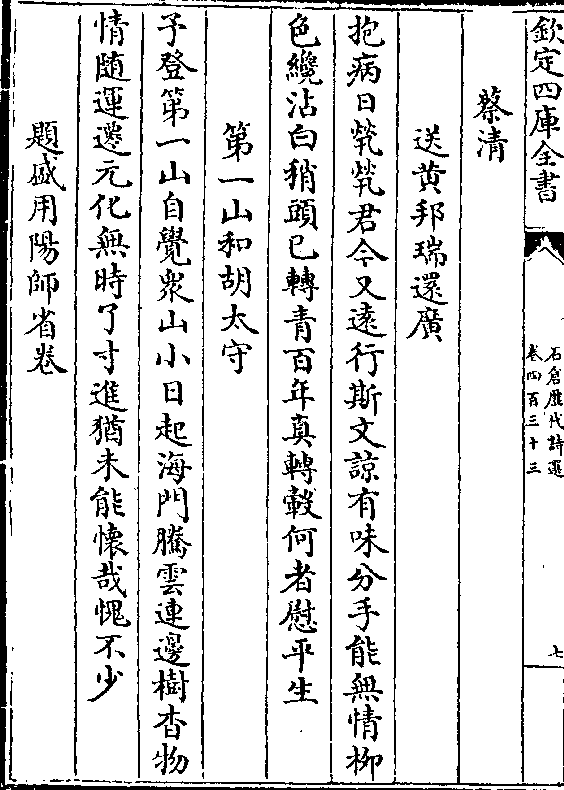 欽定四庫全書
石倉歷代詩選
卷四百三十三
七
蔡清
送黄邦瑞還廣
抱病日煢煢君今又遠行斯文諒有味分手能無情柳
色纔沾白稍頭已轉青百年真轉轂何者慰平生
第一山和胡太守
予登第一山自覺衆山小日起海門騰雲連邊樹杳物
情随運遷元化無時了寸進猶未能懷哉愧不少
題盛用陽師省卷